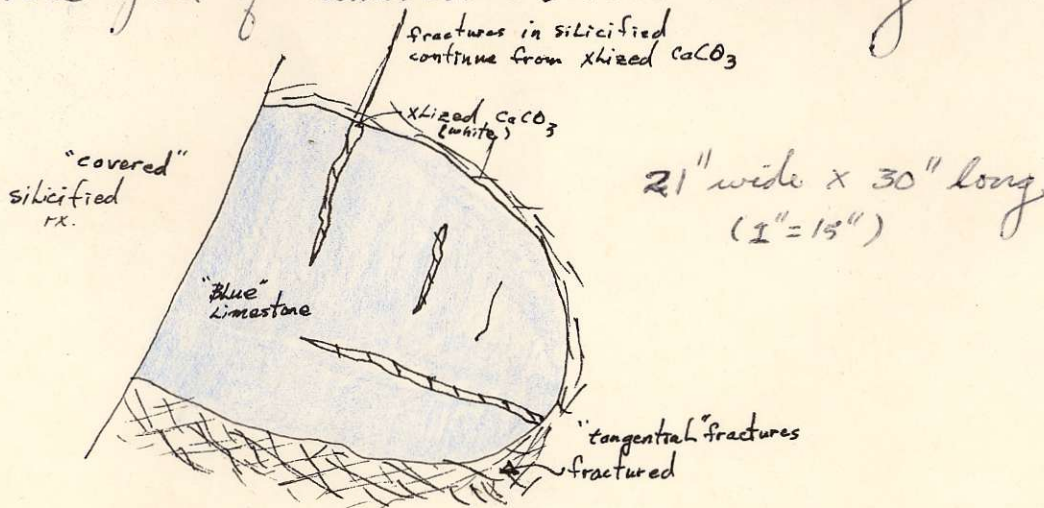 fractures in silicified
continue from xLized CaCO3
xLized CaCO3
(white)
"covered"
silicified
rx.
21" wide x 30" long
(1"=15")
"BLue"
Limestone
"tangential" fractures
fractured